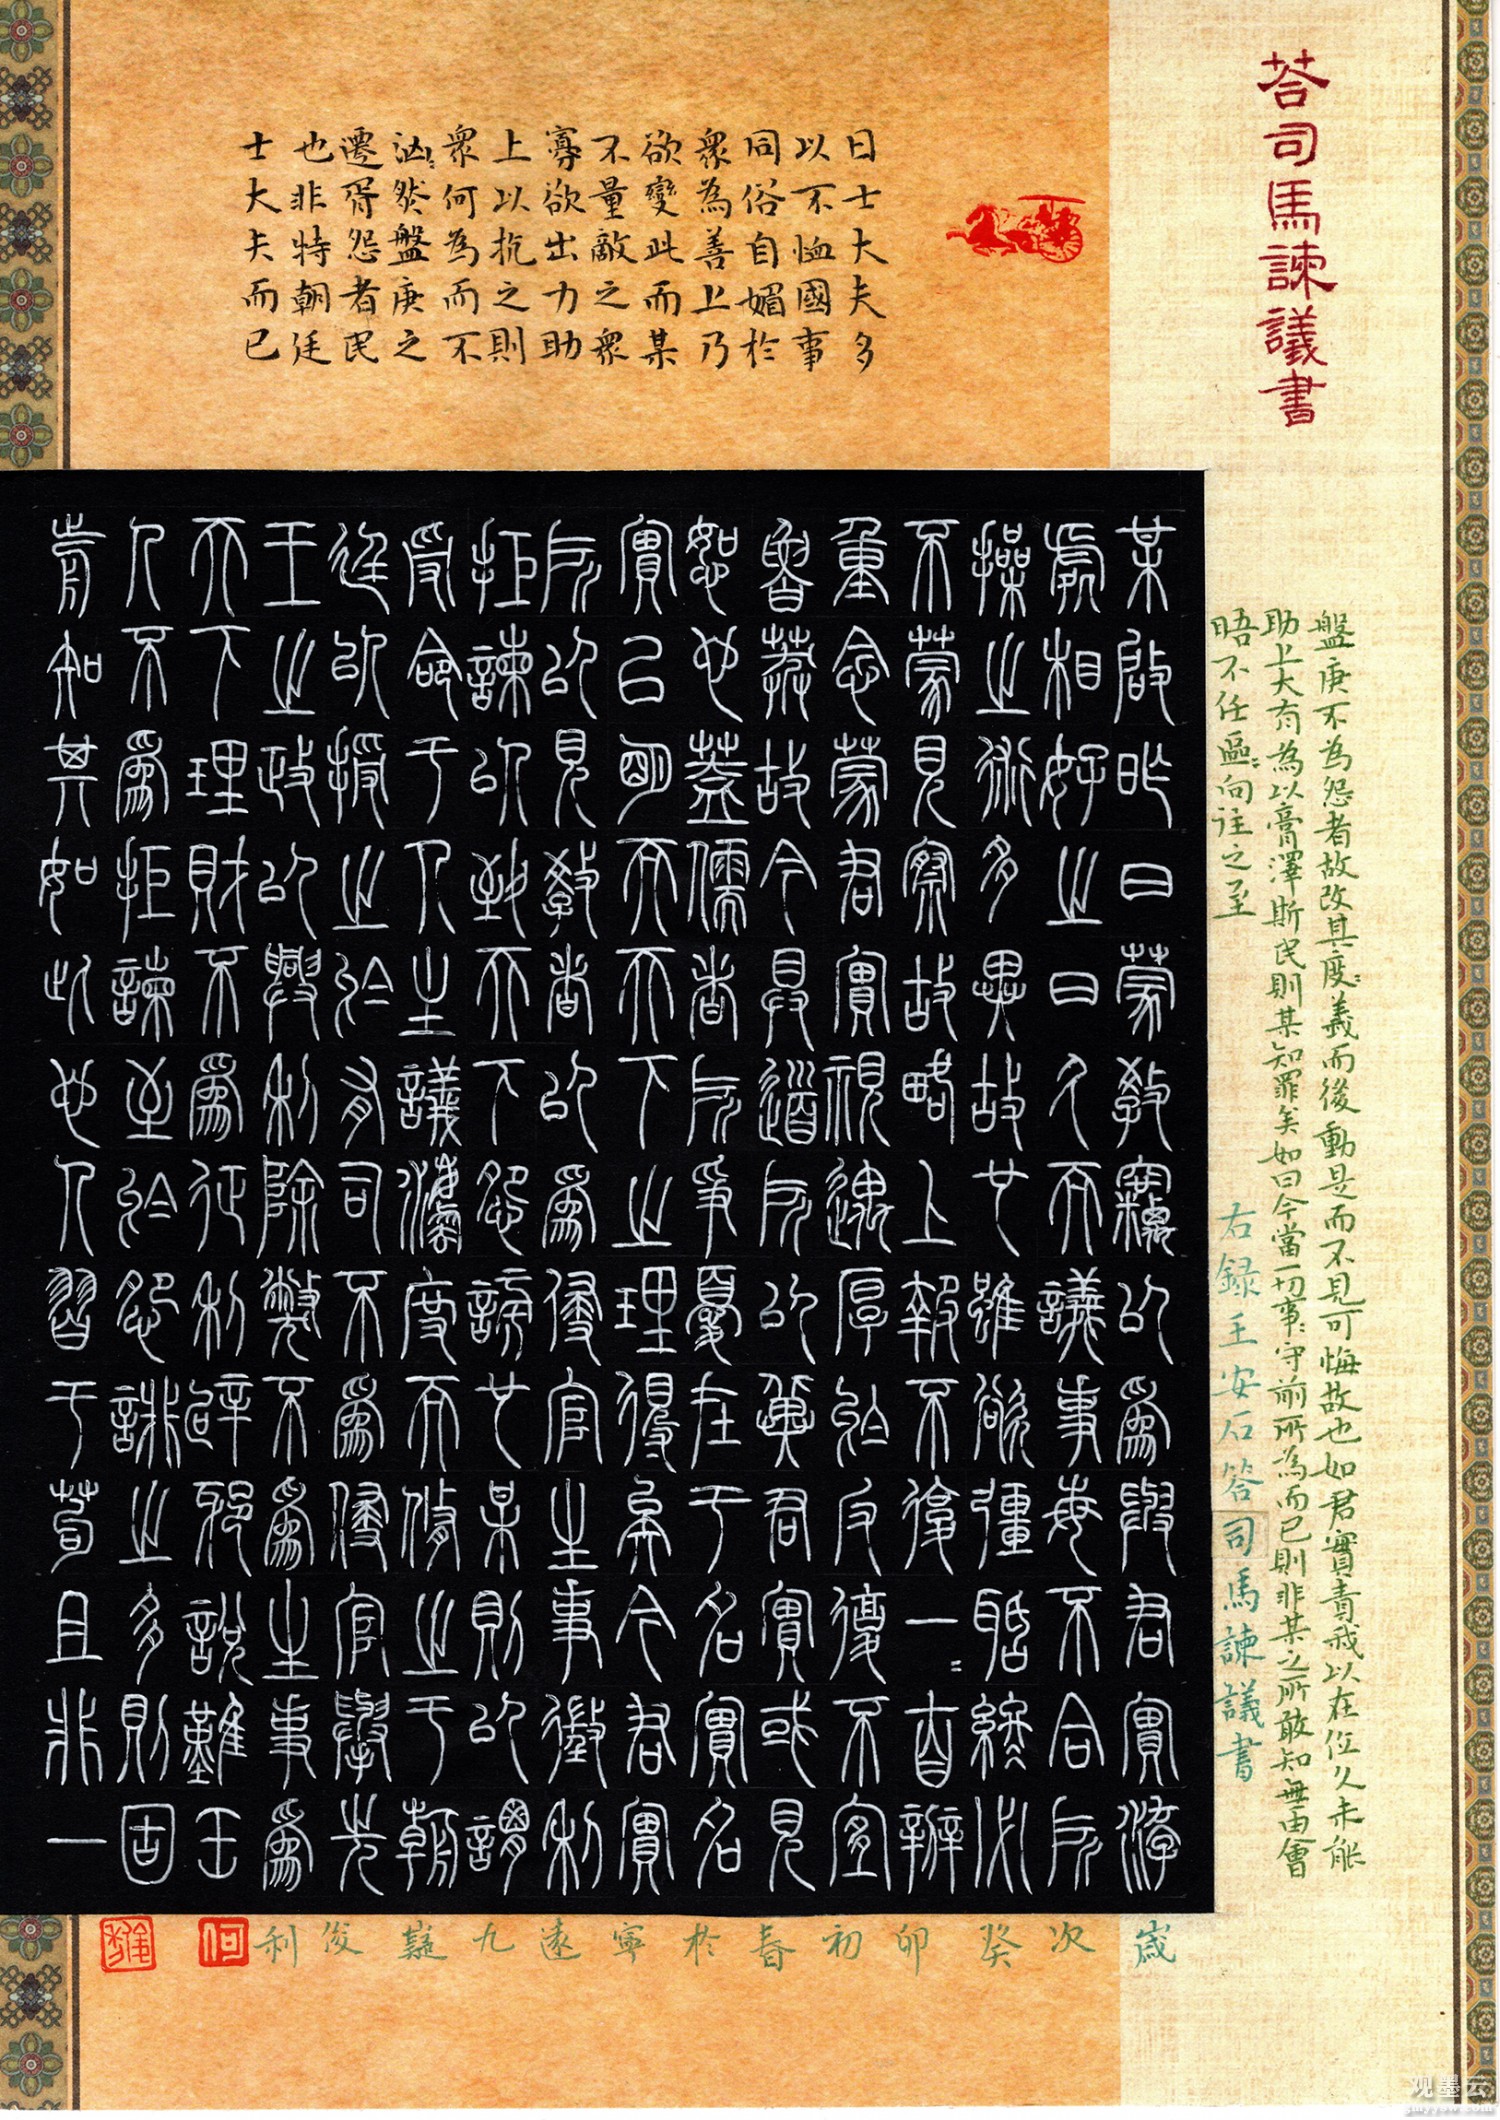 荅司馬諫議書
某啟昨日蒙教竊以為與君實游
處相好之日久而議事每不合所
操之術多異故也雖欲強聒終必
不蒙見察故略上報不復一二自辨
重念蒙君實視遇厚於反覆不宜
魯莽故今具道所以冀君實或見
恕也蓋儒者所爭尤在于名實名
實已明而天下之理得矣今君實
所以見教者以為侵官生事徵利
拒諫以致天下怨謗也某則以謂
受命于人主議灋度而脩之于朝
廷以授之於有司不為侵官舉先
王之政以興利除弊不為生事為
天下理財不為征利辟邪說難壬
人不為拒諫至於怨誹之多則固
前知其如此也人習于苟且非一
日士大夫多
以不恤國事
同俗自媚於
衆為善上乃
欲變此而某
不量敵之衆
寡欲出力助
上以抗之則
衆何為而不
洶〻然盤庚之
遷胥怨者民
也非特朝廷
士大夫而已
盤庚不為怨者故改其度〻義而後動是而不見可悔故也如君實責我以在位久未能
助上大有為以膏澤斯民則某知罪矣如曰今當一切事〻守前所為而已則非某之所敢知無由會
晤不任區〻向往之至
右録王安石答司馬諫議書
歲次癸卯初春於寧遠九嶷俊利
何
观墨云